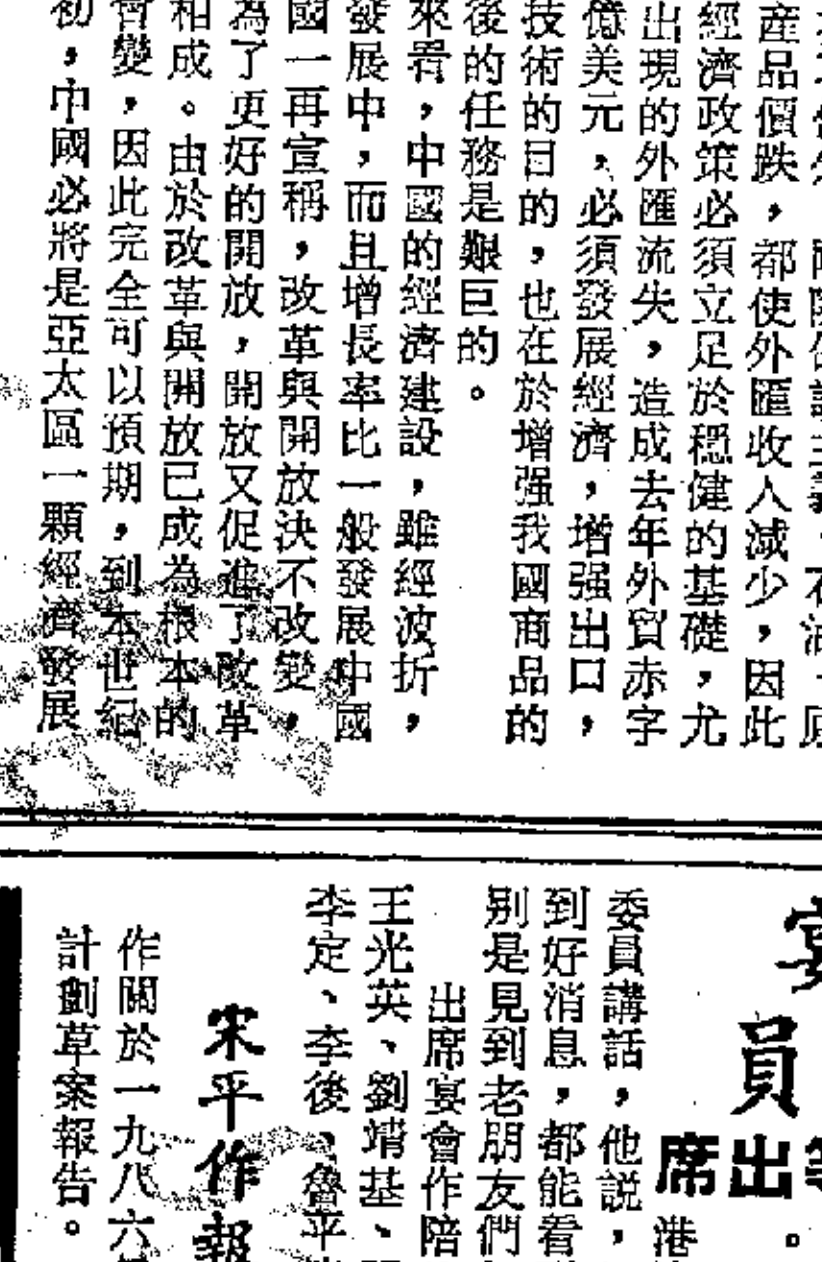 產品價跌，都使外匯收入減少，因此
經濟政策必須立足於穩健的基礎，尤
出現的外匯流失，造成去年外貿赤字
億美元，必須發展經濟，增强出口，
技術的目的，也在於增强我國商品的
後的任務是艱巨的。
來看，中國的經濟建設，雖經波折，
發展中，而且增長率比一般發展中國
國一再宣稱，改革與開放決不改變，
為了更好的開放，開放又促進了改革
相成。由於改革與開放已成為根本的
會變，因此完全可以預期，到本世紀
初，中國必將是亞太區一顆經濟發展
宴員
出
席
港
委員講話，他說，
到好消息，都能看
別是見到老朋友們
出席宴會作陪
王光英、劉靖基、
李定、李後、魯平
宋平作報
作關於一九八六
計劃草案報告。